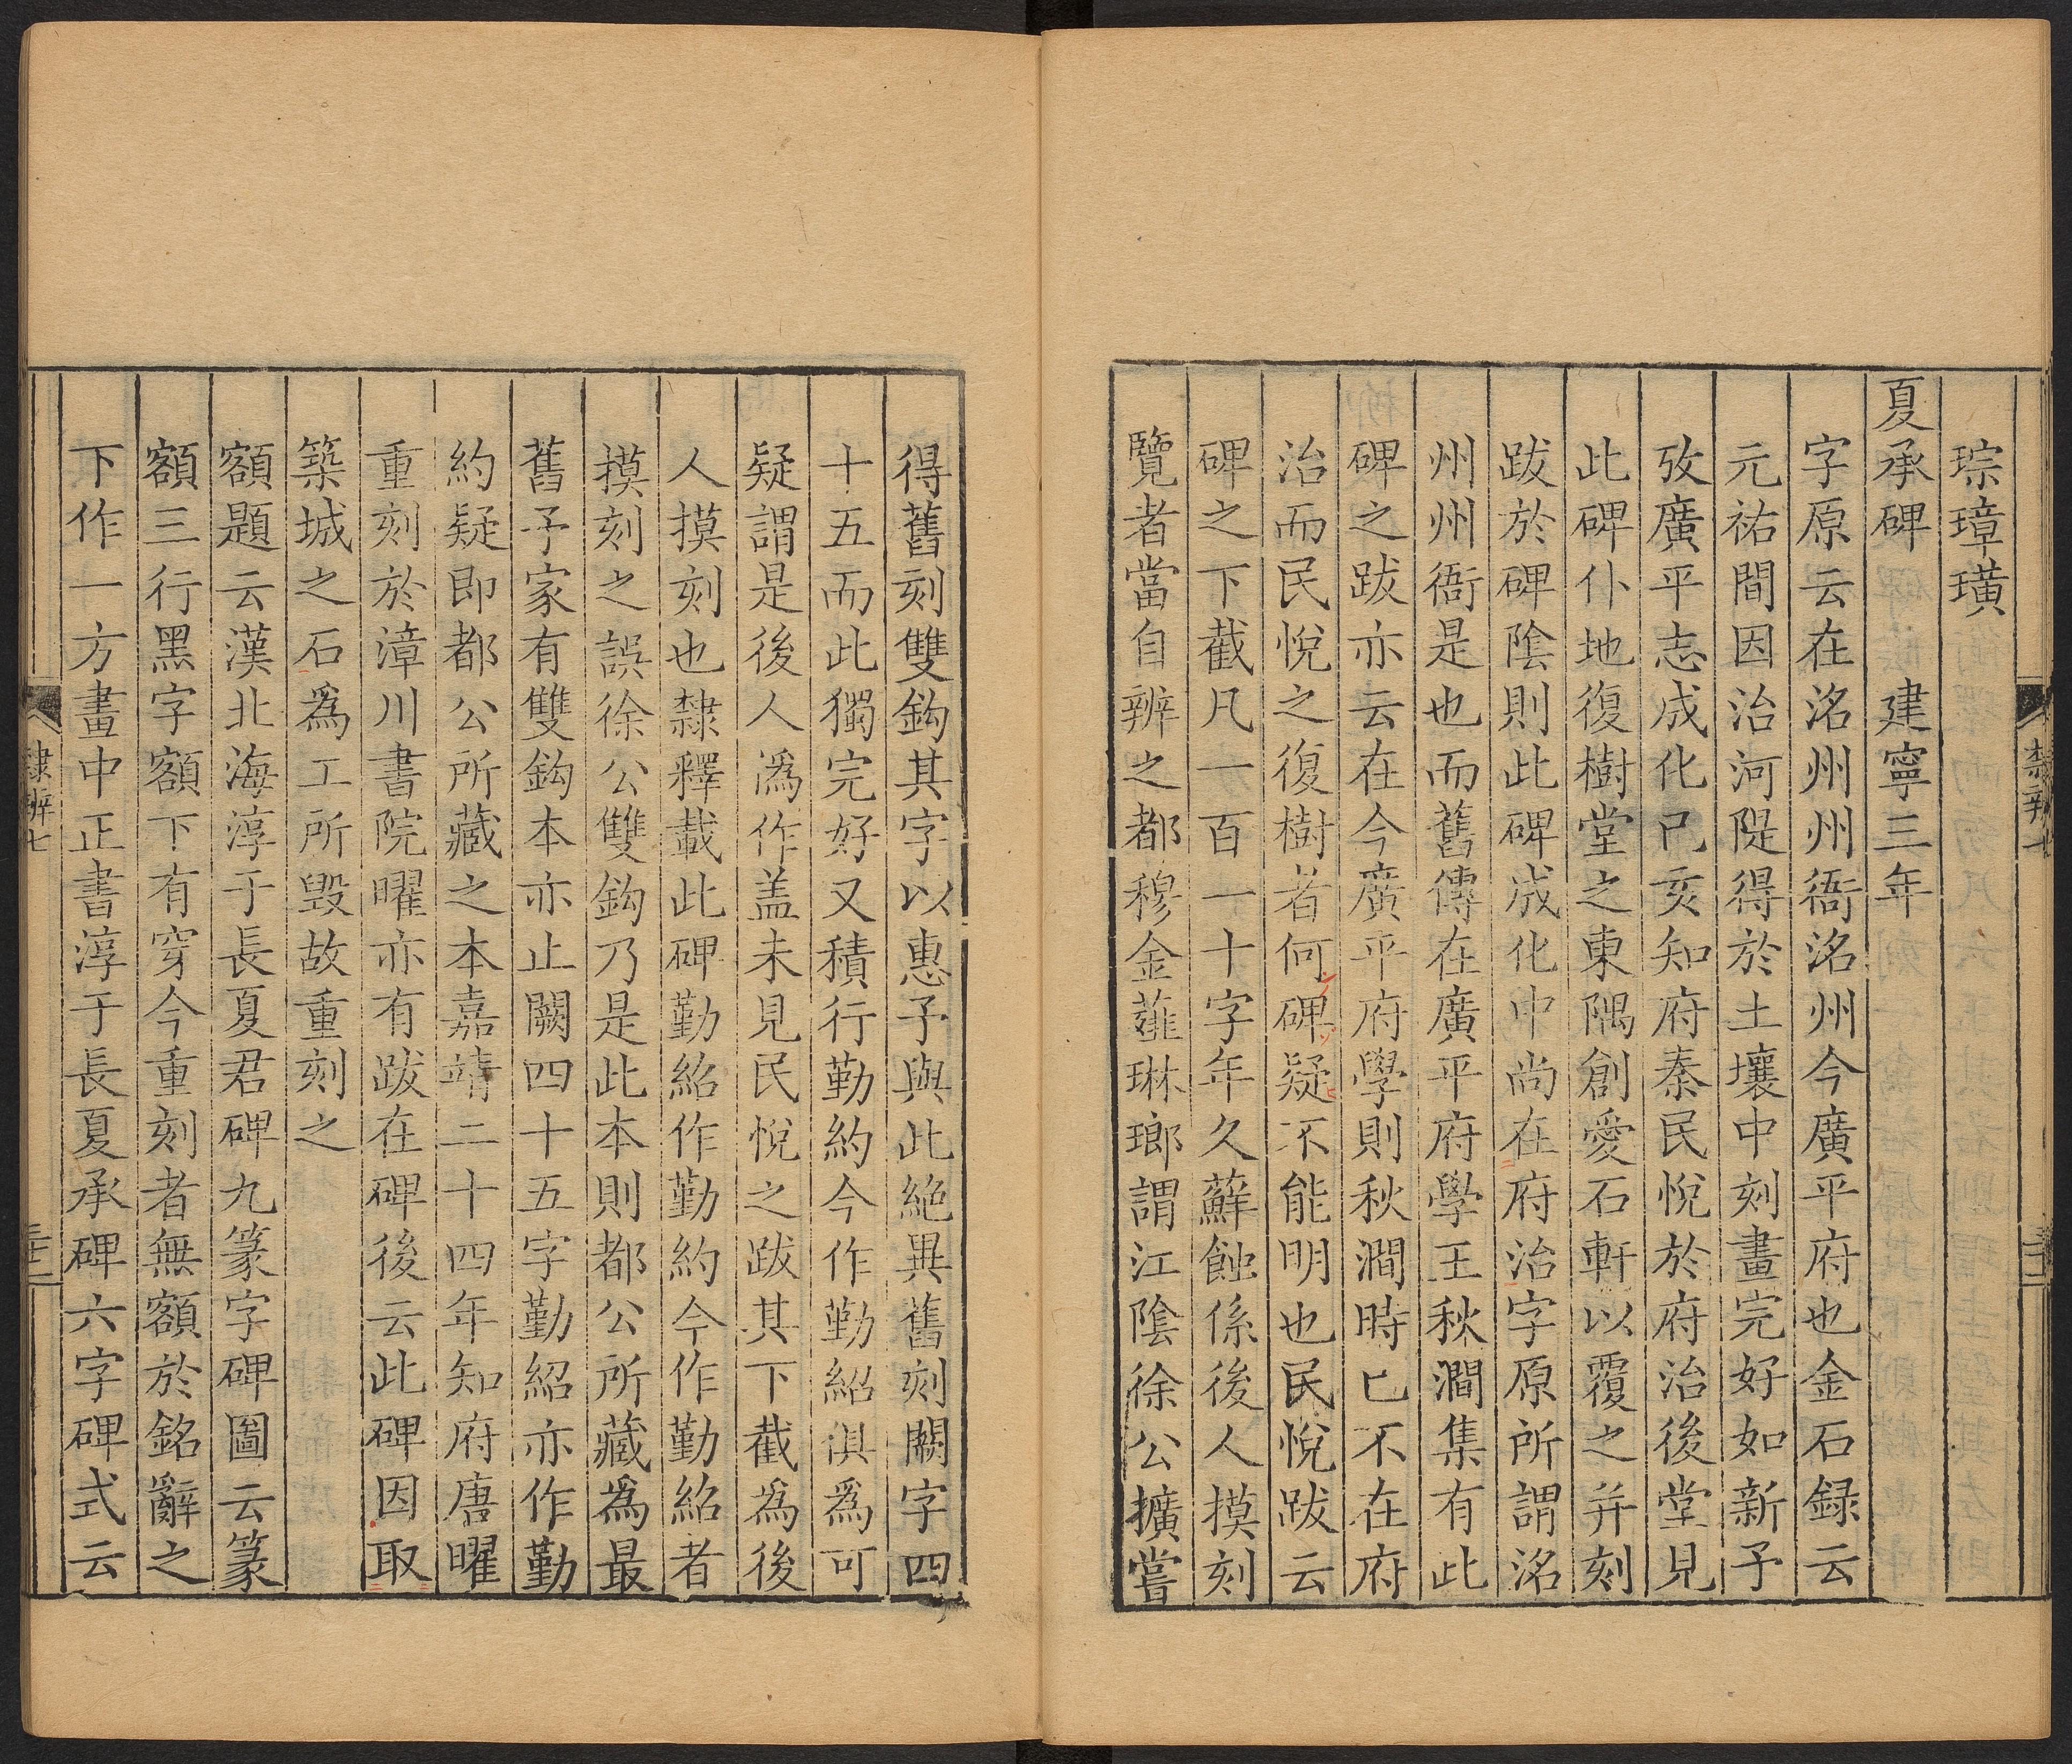 琮璋璜
夏承碑　建寧三年
字原云在洺州州衙洺州今廣平府也金石録云
元祐間因治河隄得於土壤中刻畫完好如新予
攷廣平志成化己亥知府秦民悅於府治後堂見
此碑仆地復樹堂之東隅創愛石軒以覆之并刻
跋於碑陰則此碑成化中尚在府治字原所謂洺
州州衙是也而舊傳在廣平府學王秋澗集有此
碑之跋亦云在今廣平府學則秋澗時已不在府
治而民悅之復樹者何碑疑不能明也民悅跋云
碑之下截凡一百一十字年久蘚蝕係後人摸刻
覽者當自辨之都穆金薤琳瑯謂江陰徐公擴嘗
隸辨七
得舊刻雙鈎其字以惠予與此絕異舊刻闕字四
十五而此獨完好又積行勤約今作勤紹俱爲可
疑謂是後人爲作盖未見民悅之跋其下截爲後
人摸刻也隸釋載此碑勤紹作勤約今作勤紹者
摸刻之誤徐公雙鈎乃是此本則都公所藏爲最
舊予家有雙鈎本亦止闕四十五字勤紹亦作勤
約疑即都公所藏之本嘉靖二十四年知府唐曜
重刻於漳川書院曜亦有跋在碑後云此碑因取
築城之石爲工所毀故重刻之
額題云漢北海淳于長夏君碑九篆字碑圖云篆
額三行黑字額下有穿今重刻者無額於銘辭之
下作一方畫中正書淳于長夏承碑六字碑式云
隸辨七